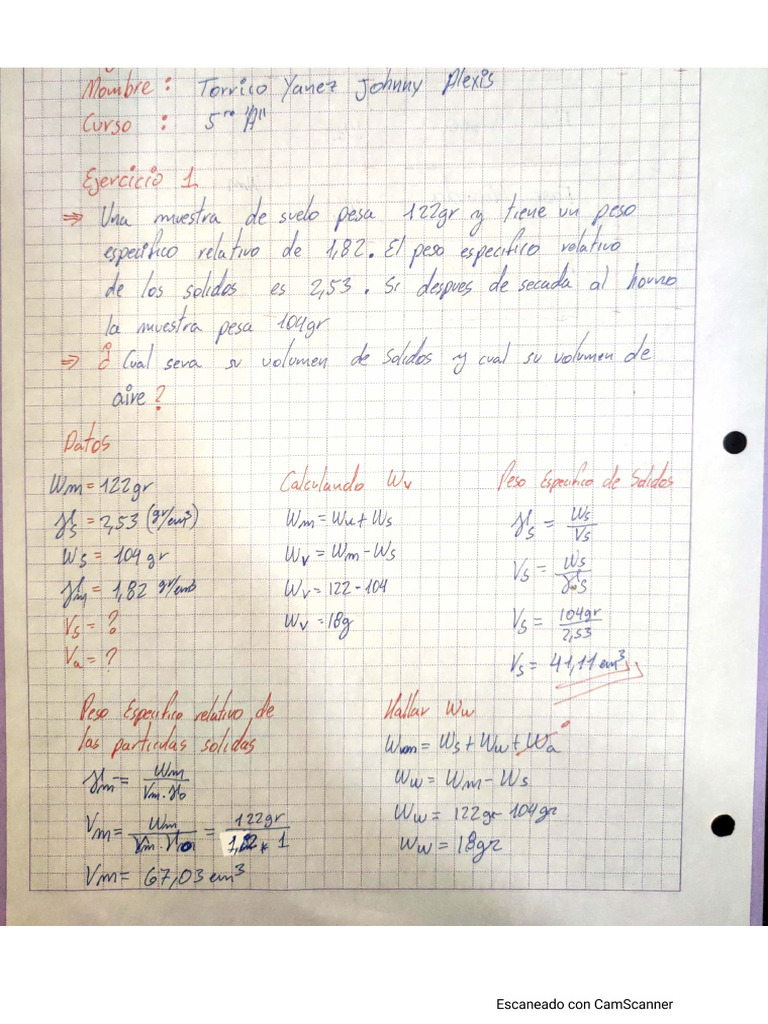 Nombre : Torrico Yanez Johnny Alexis
Curso : 5ro "A"
Ejercicio 1
⇒ Una muestra de suelo pesa 122gr y tiene un peso
especifico relativo de 1,82. El peso especifico relativo
de los solidos es 2,53. Si despues de secada al horno
la muestra pesa 104gr
⇒ ¿Cual sera su volumen de solidos y cual su volumen de
aire?
Datos
Wm = 122gr
γs = 2,53 (gr/cm³)
Ws = 104 gr
γm = 1,82 gr/cm³
Vs = ?
Va = ?
Calculando Wv
Wm = Wv + Ws
Wv = Wm - Ws
Wv = 122 - 104
Wv = 18g
Peso Especifico de Solidos
γs = Ws/Vs
Vs = Ws/γs
Vs = 104gr/2,53
Vs = 41,11 cm³
Peso Especifico relativo de
las particulas solidas
γm = Wm/Vm·γo
Vm = Wm/γm·γo = 122gr/1,82 * 1
Vm = 67,03 cm³
Hallar Ww
Wm = Ws + Ww + Wa 0
Ww = Wm - Ws
Ww = 122gr - 104gr
Ww = 18gr
Escaneado con CamScanner